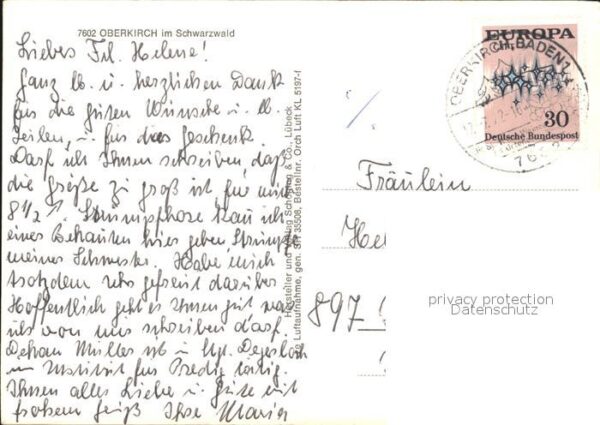 7602 OBERKIRCH im Schwarzwald
Liebes Frl. Helene!
Ganz lb. u. herzlichen Dank
für die guten Wünsche u. lb.
Zeilen, u. für das Geschenk.
Darf ich Ihnen schreiben, daß
die Größe zu groß ist für mich
8 1/2. Strumpfhose kann ich
eines Bekannten hier geben Strümpfe
meiner Schwester. Habe mich
trotzdem sehr gefreut darüber
Hoffentlich geht es Ihnen gut was
ich von uns schreiben darf.
Dekan Müller ist in Degerloch
im Institut für Predig tätig.
Ihnen alles Liebe u. Gute mit
frohem Gruß Ihre Maria
Hersteller und Verlag Schöning & Co., Lübeck
Luftaufnahme, gen. SH 35508, Bestellnr. Orch Luft KL 5197-f
EUROPA
30
Deutsche Bundespost
OBERKIRCH, BADEN
Fräulein
Hel
897
privacy protection
Datenschutz